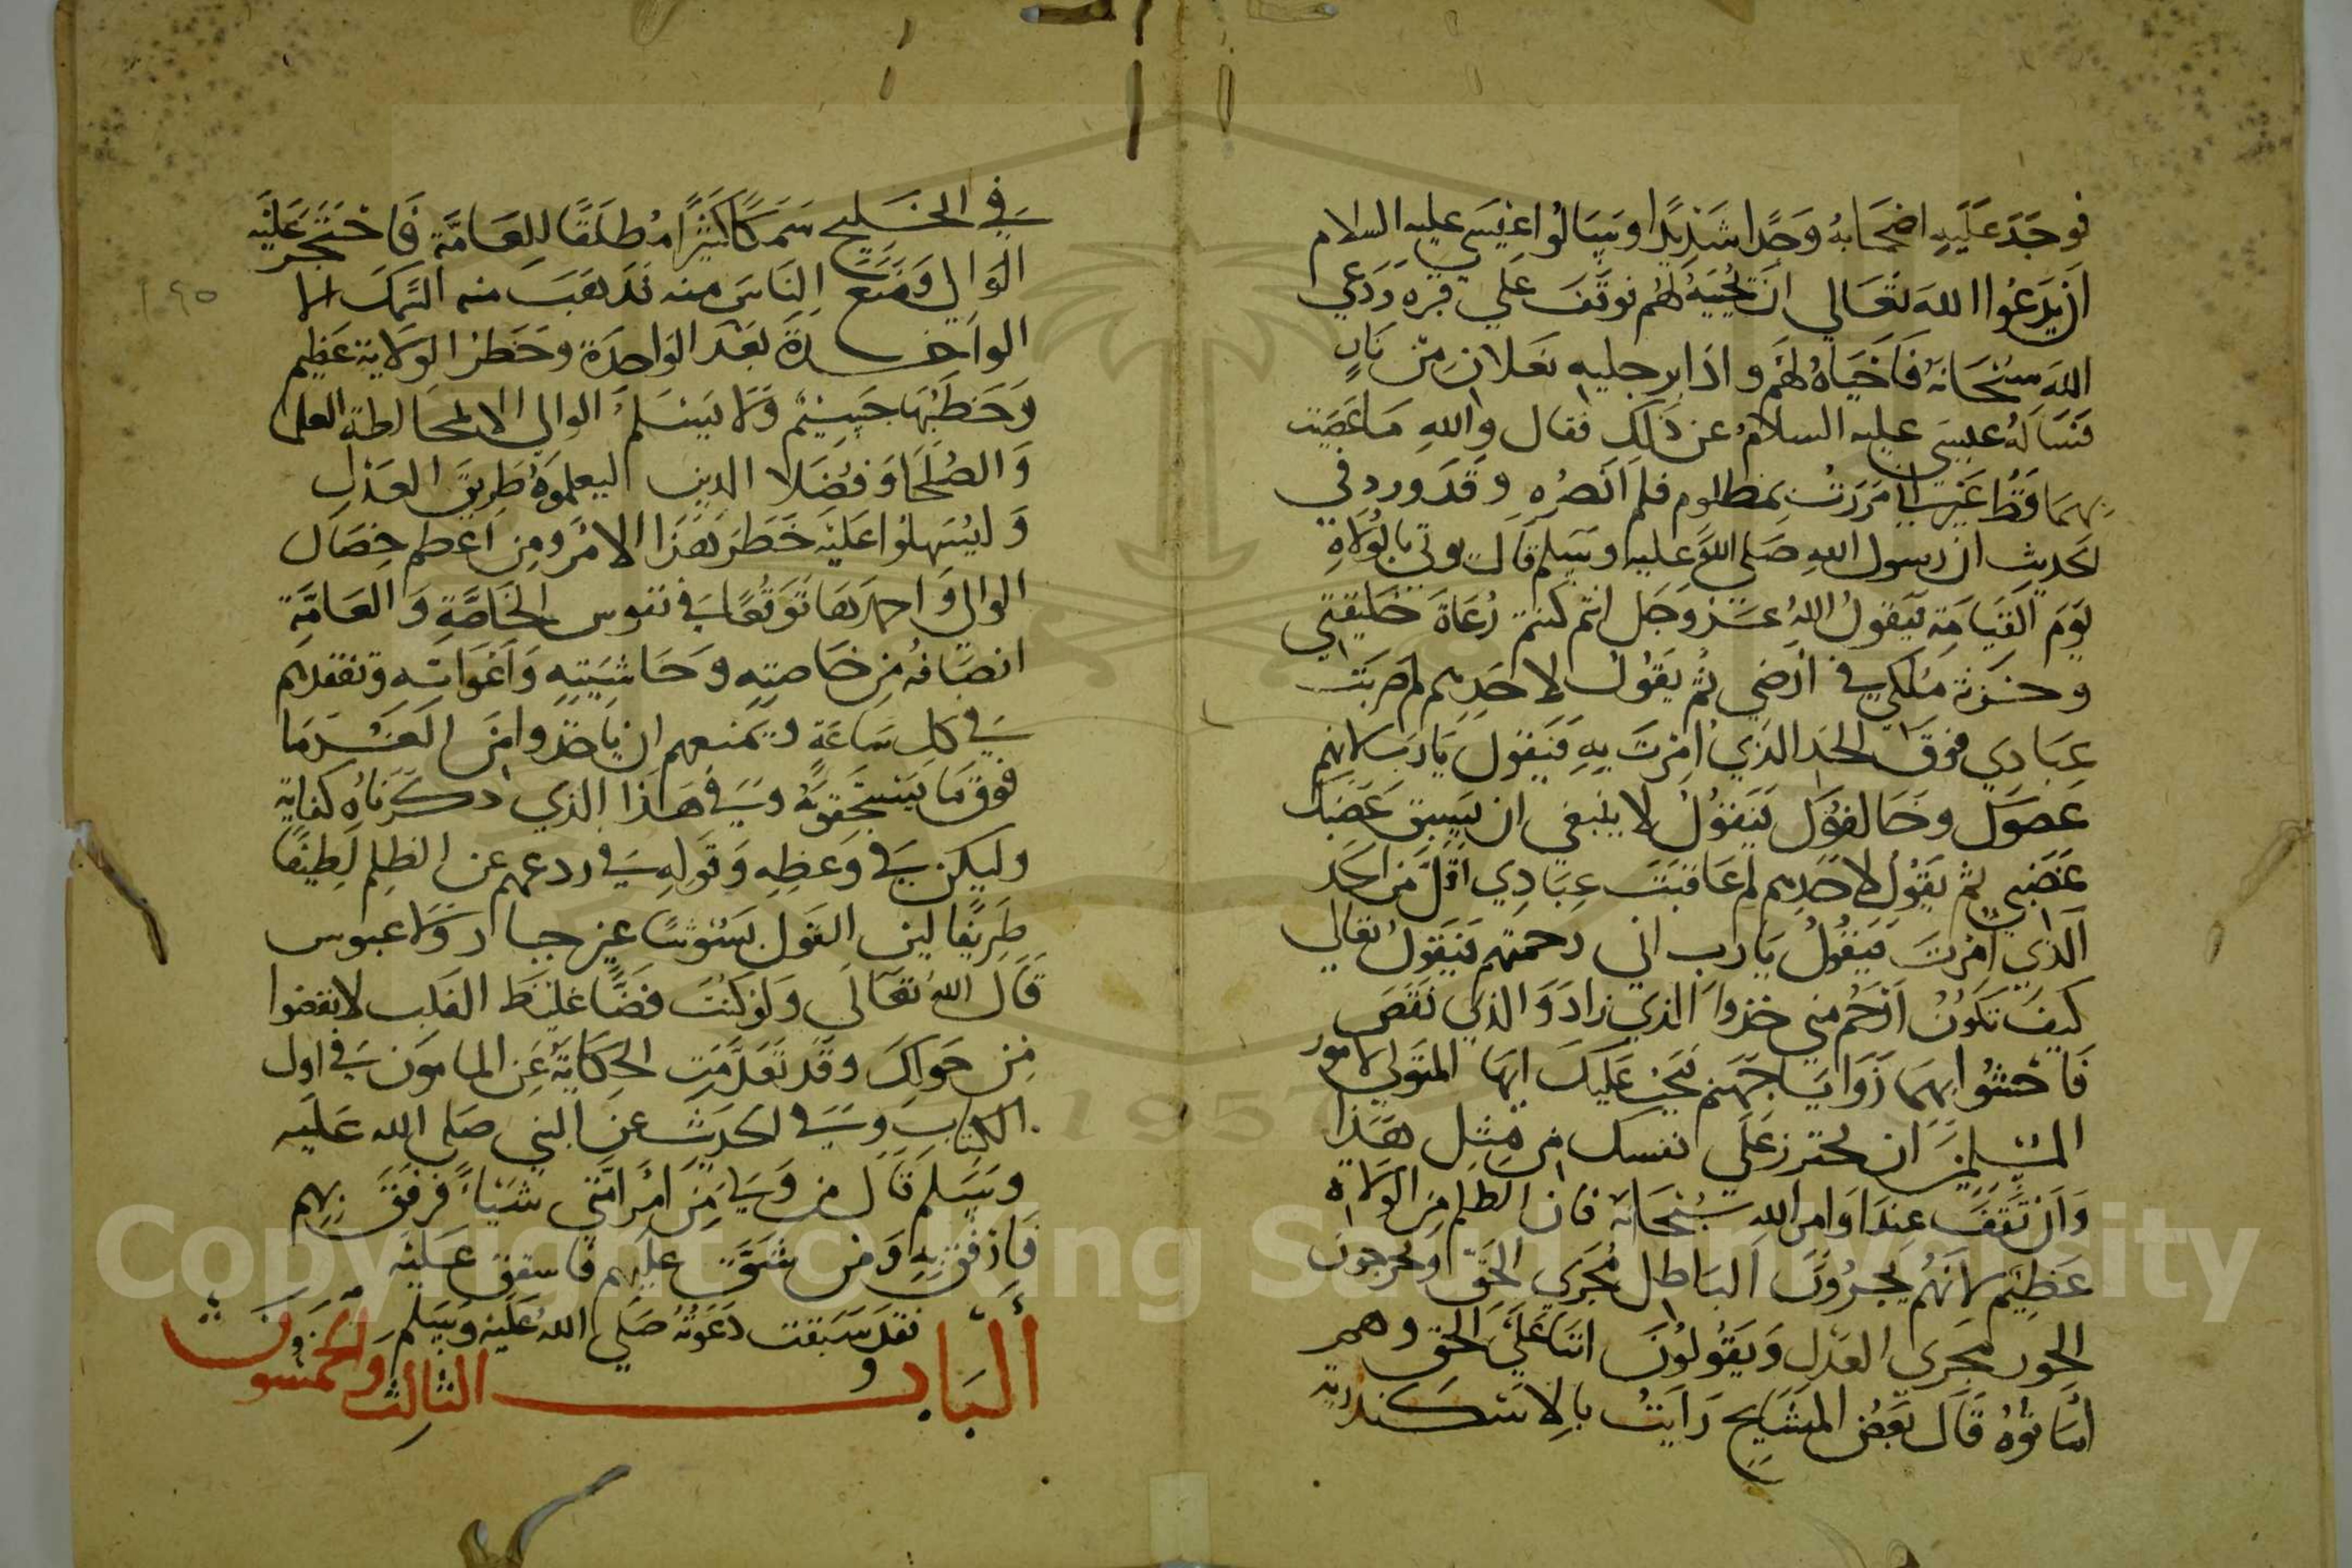 فوجد عليه اصحابه وجدا شديدا وسالوا عيسى عليه السلام
ان يدعوا الله تعالي ان يحييه لهم فوقف علي قبره ودعي
الله سبحانه فاحياه لهم واذا برجليه نعلان من نار
فساله عيسى عليه السلام عن ذلك فقال والله ما عصيت
بهما قط غير اني مررت بمظلوم فلم انصره وقد ورد في
الحديث ان رسول الله صلي الله عليه وسلم قال يوتي بالولاة
يوم القيامة فيقول الله عز وجل انتم كنتم رعاة خليقتي
وخزنة ملكي في ارضي ثم يقول لاحدهم لم ضربت
عبادي فوق الحد الذي امرت به فيقول يا رب لانهم
عصوك وخالفوك فيقول لا ينبغي ان يسبق غضبك
غضبي ثم يقول لاحدهم لم عاقبت عبادي اقل من الحد
الذي امرت فيقول يا رب اني رحمتهم فيقول تعالي
كيف تكون ارحم مني خذوا الذي زاد والذي نقص
فاحشوا بهما زوايا جهنم فيجب عليك ايها المتولي لامور
المسلمين ان تحترز علي نفسك من مثل هذا
وان تقف عند اوامر الله سبحانه فان الظلم من الولاة
عظيم لانهم يجرون الباطل مجري الحق ويخرجون
الجور مجري العدل ويقولون اننا علي الحق وهم
اماتوه قال بعض المشايخ رايت بالاسكندرية
في الخليج سمكا كثيرا مطلقا للعامة فاحتجر عليه
الوالي ومنع الناس منه فذهب منه السمك الا
الواحدة بعد الواحدة وخطر الولاية عظيم
وخطبها جسيم ولا يسلم الوالي الا بمخالطة العلما
والصلحا وفضلا الدين ليعلموه طريق العدل
وليسهلوا عليه خطر هذا الامر ومن اعظم خصال
الوالي واحمدها توقعا في نفوس الخاصة والعامة
انصافه من خاصته وحاشيته واعوانه وتفقدهم
في كل ساعة ويمنعهم ان ياخذوا من ما
فوق ما يستحقونه وفي هذا الذي ذكرناه كفاية
وليكن في وعظه وقوله في ردعهم عن الظلم لطيفا
ظريفا لين القول بشوشا غير جبار ولا عبوس
قال الله تعالي ولو كنت فضا غليظ القلب لانفضوا
من حولك وقد تقدمت الحكاية عن المامون في اول
الكتاب وفي الحديث عن النبي صلي الله عليه
وسلم قال من ولي من امر امتي شيا فرفق بهم
فارفق به ومن شق عليهم فاشقق عليه
فقد سبقت دعوته صلي الله عليه وسلم
الباب الثالث والخمسون
Copyright © King Saud University
1957